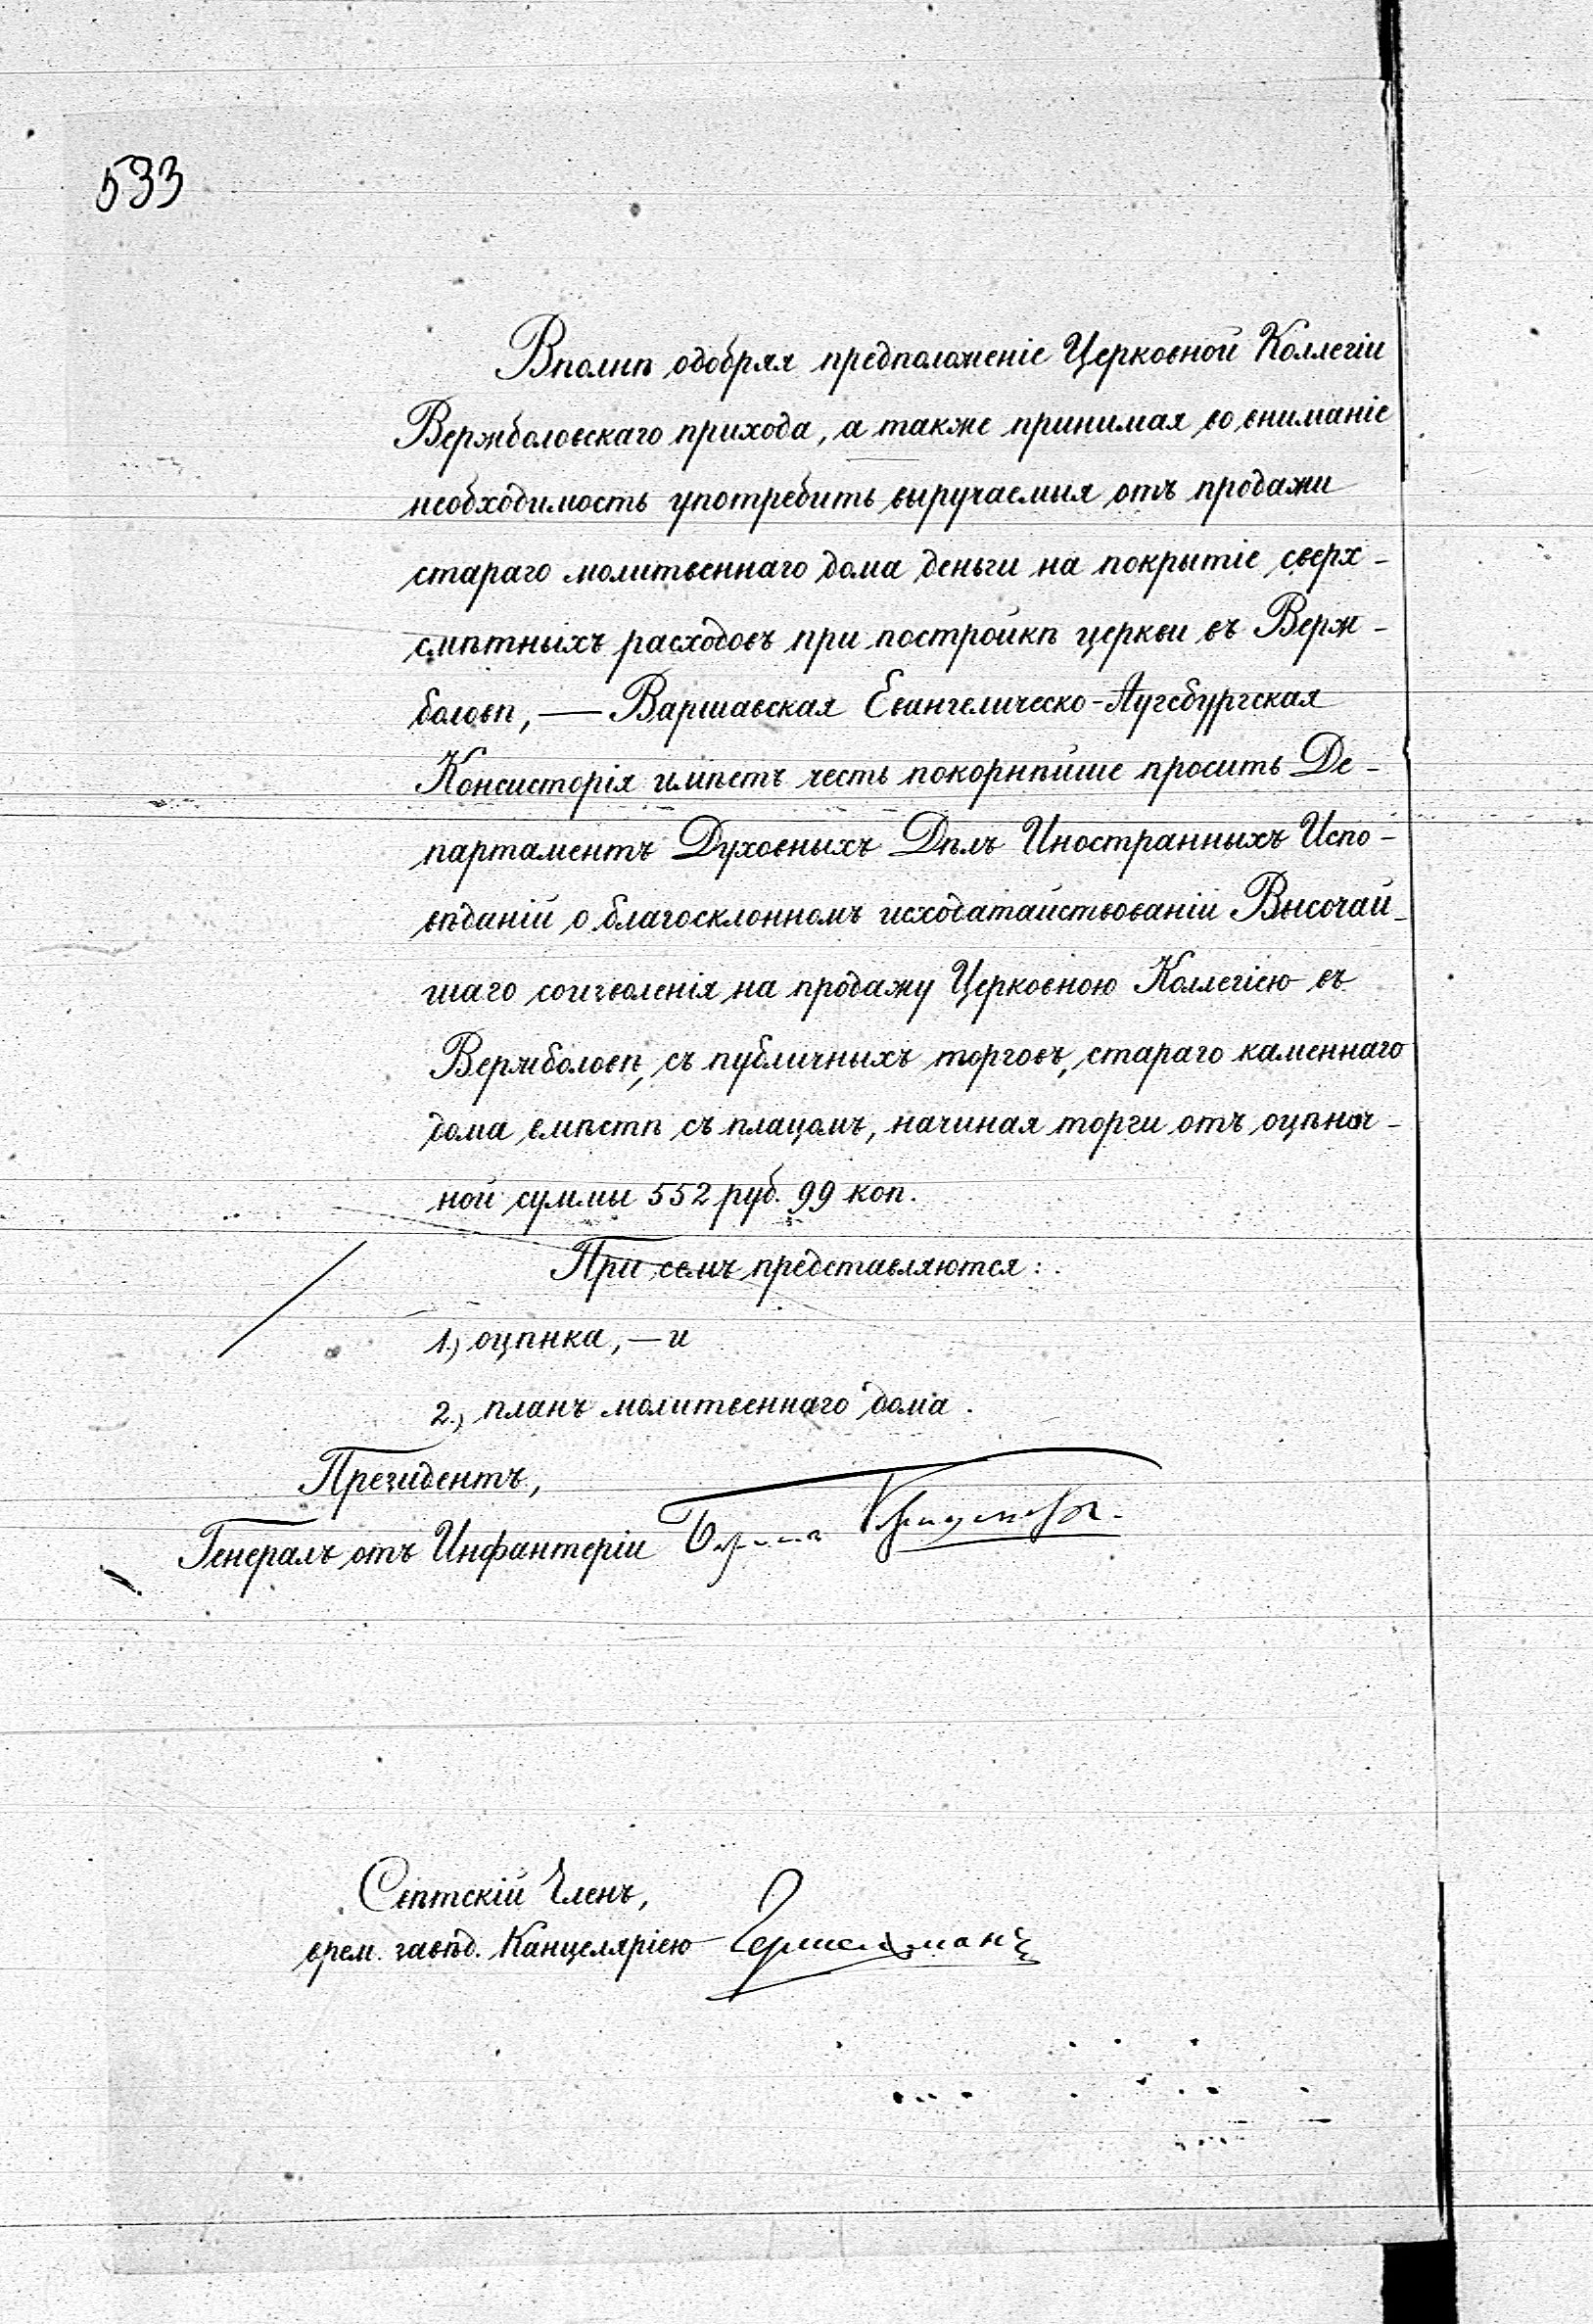 533
Вполнѣ одобряя предположеніе Церковной Коллегіи
Вержболовскаго прихода, а также принимая во вниманіе
необходимость употребить выручаемыя отъ продажи
стараго молитвеннаго дома деньги на покрытіе сверх-
смѣтныхъ расходовъ при постройкѣ церкви въ Верж-
боловѣ, — Варшавская Евангелическо-Аугсбургская
Консисторія имѣетъ честь покорнѣйше просить Де-
партаментъ Духовныхъ Дѣлъ Иностранныхъ Испо-
вѣданій о благосклонномъ исходатайствованіи Высочай-
шаго соизволенія на продажу Церковною Коллегіею въ
Вержболовѣ, съ публичныхъ торговъ, стараго каменнаго
дома вмѣстѣ съ плацомъ, начиная торги отъ оцѣноч-
ной суммы 552 руб. 99 коп.
При семъ представляются:
1.) оцѣнка, — и
2.) планъ молитвеннаго дома.
Президентъ,
Генералъ отъ Инфантеріи
Свѣтскій Членъ,
врем. завѣд. Канцеляріею